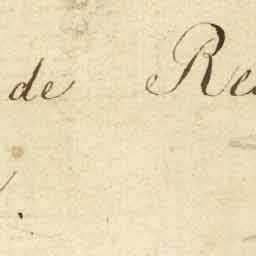 de Re